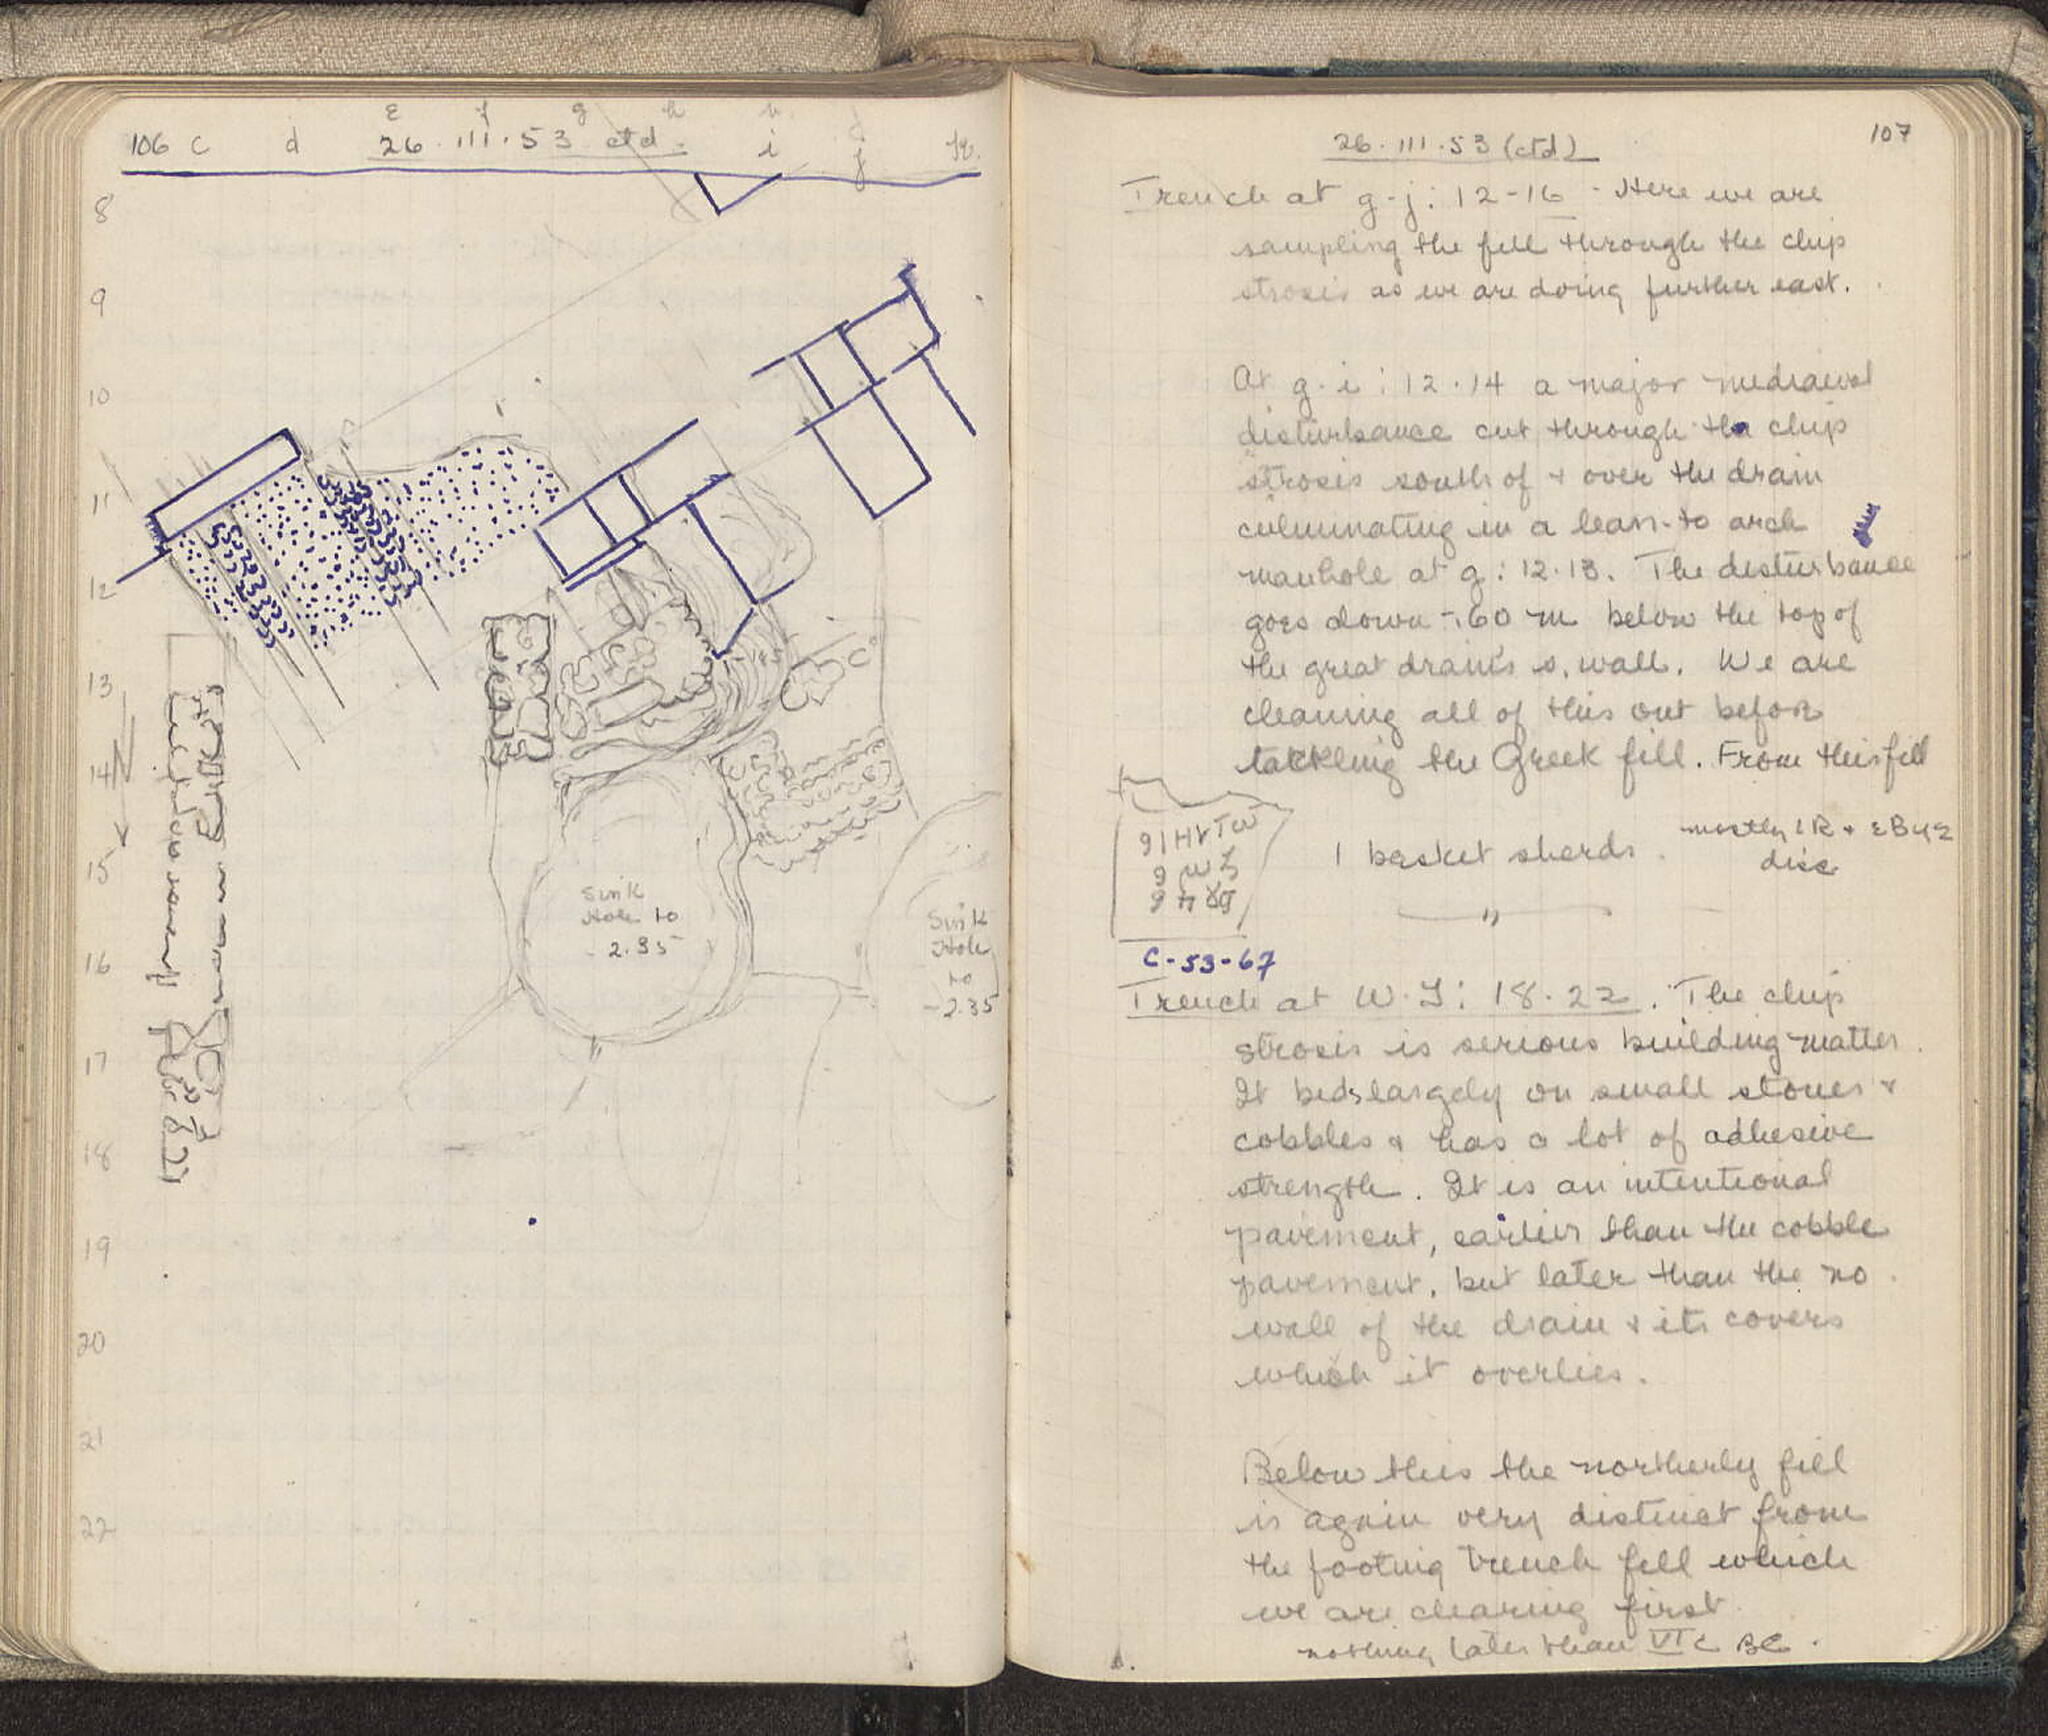 106 c d e f g h i j k
26.III.53 ctd.
8
9
10
11
12
13
14
15
16
17
18
19
20
21
22
N
C
Sink
Hole to
- 2.35
Sink
Hole
to
- 2.35
26.III.53 (ctd)
107
Trench at g-j: 12-16 - Here we are
sampling the fill through the chip
strosis as we are doing further east.
At g.i: 12.14 a major mediaeval
disturbance cut through the chip
strosis south of + over the drain
culminating in a lean-to arch
manhole at g: 12.13. The disturbance
goes down -.60 m below the top of
the great drain's s. wall. We are
cleaning all of this out before
tackling the Greek fill. From this fill
1 basket sherds. mostly LR + EByz
disc
"
C-53-67
Trench at W.I: 18.22. The chip
strosis is serious building matter.
It beds largely on small stones +
cobbles + has a lot of adhesive
strength. It is an intentional
pavement, earlier than the cobble
pavement, but later than the no
wall of the drain + its covers
which it overlies.
Below this the northerly fill
is again very distinct from
the footing trench fill which
we are clearing first.
nothing later than VI c BC.